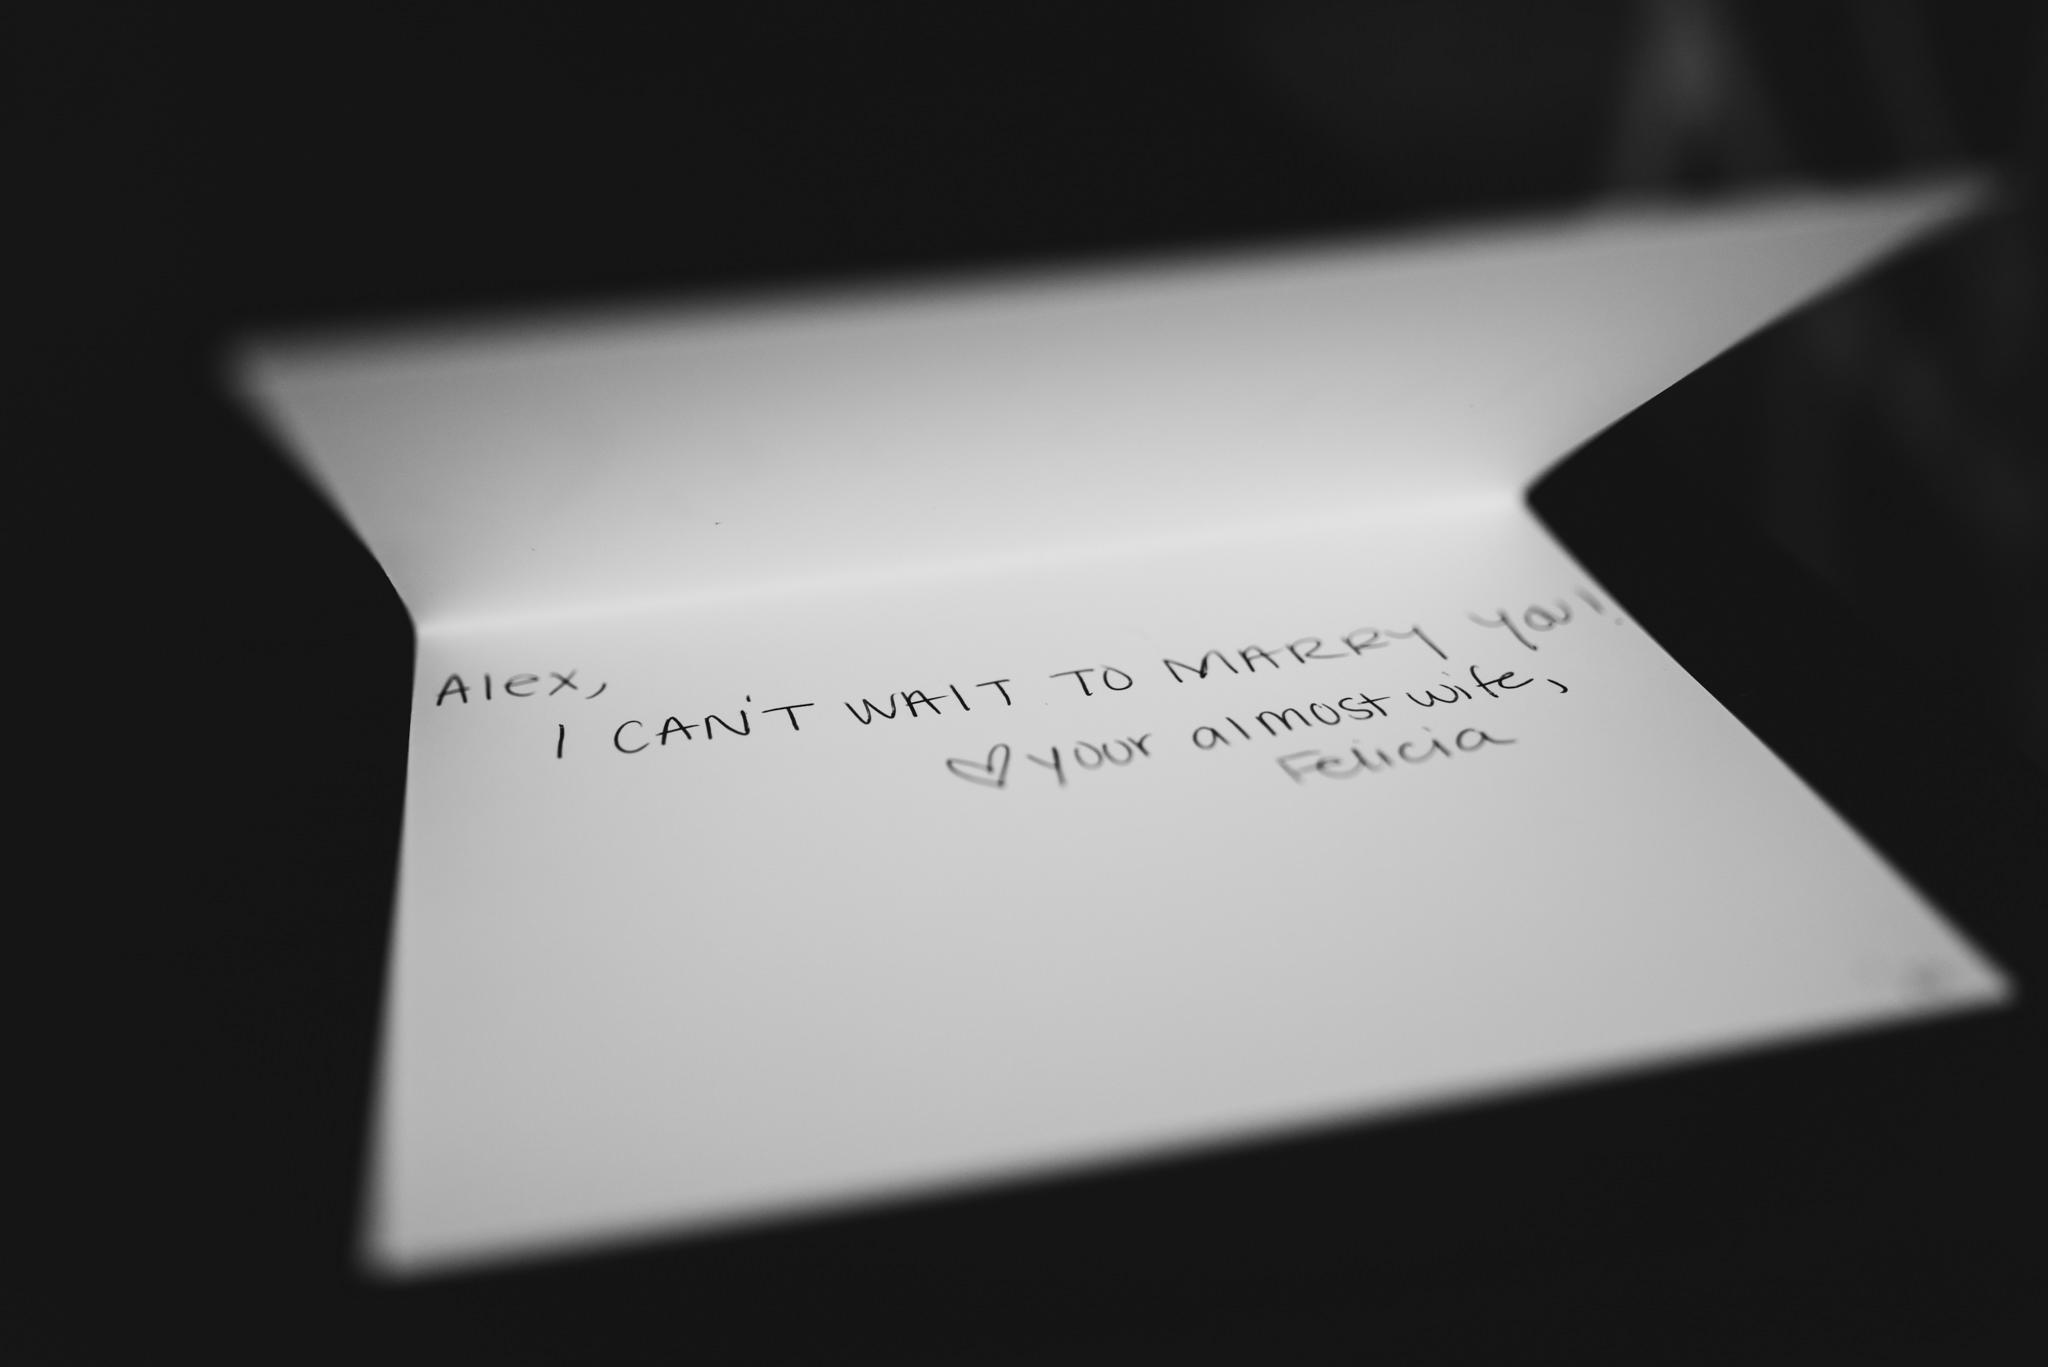 Alex,
I CAN'T WAIT TO MARRY YOU!
♡ your almost wife,
Felicia